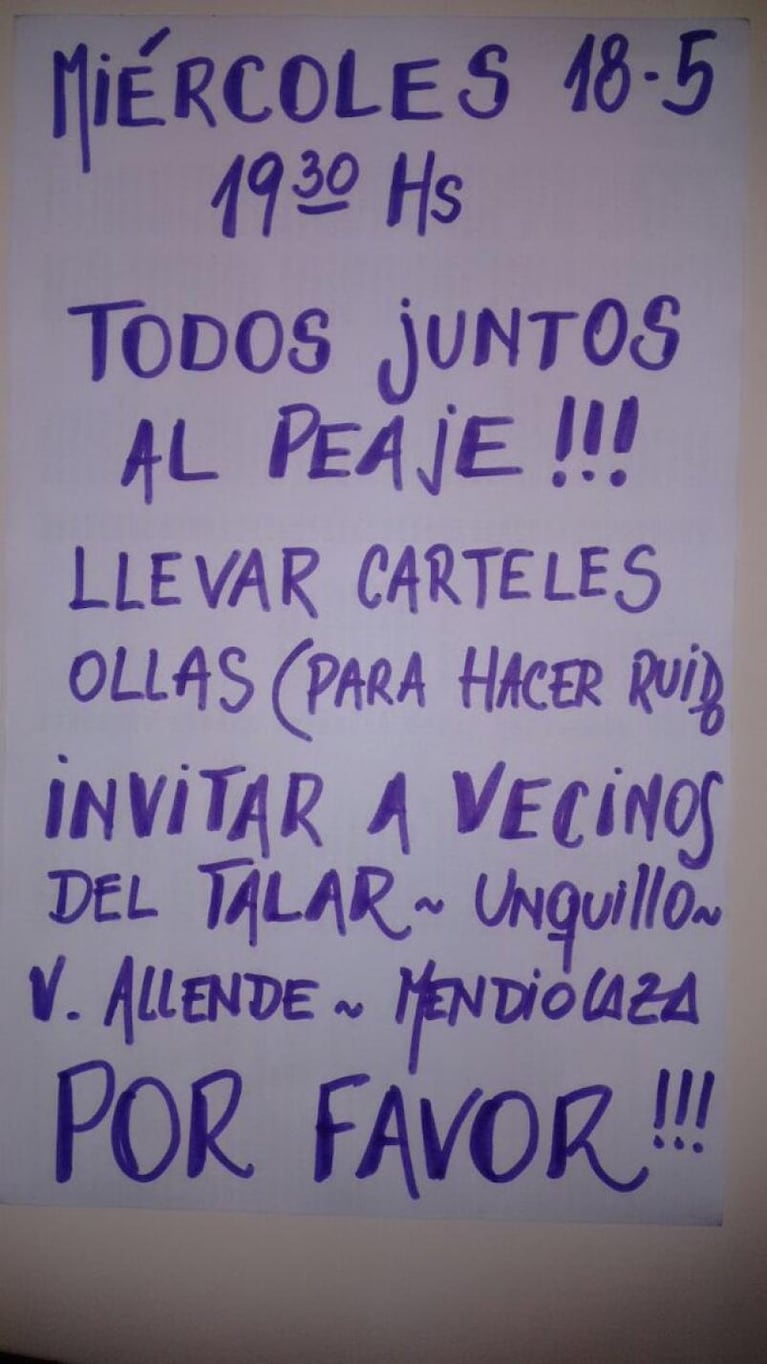 MIÉRCOLES 18-5
19 30 Hs
TODOS JUNTOS
AL PEAJE!!!
LLEVAR CARTELES
OLLAS (PARA HACER RUIDO
INVITAR A VECINOS
DEL TALAR ~ UNQUILLO ~
V. ALLENDE ~ MENDIOLAZA
POR FAVOR!!!